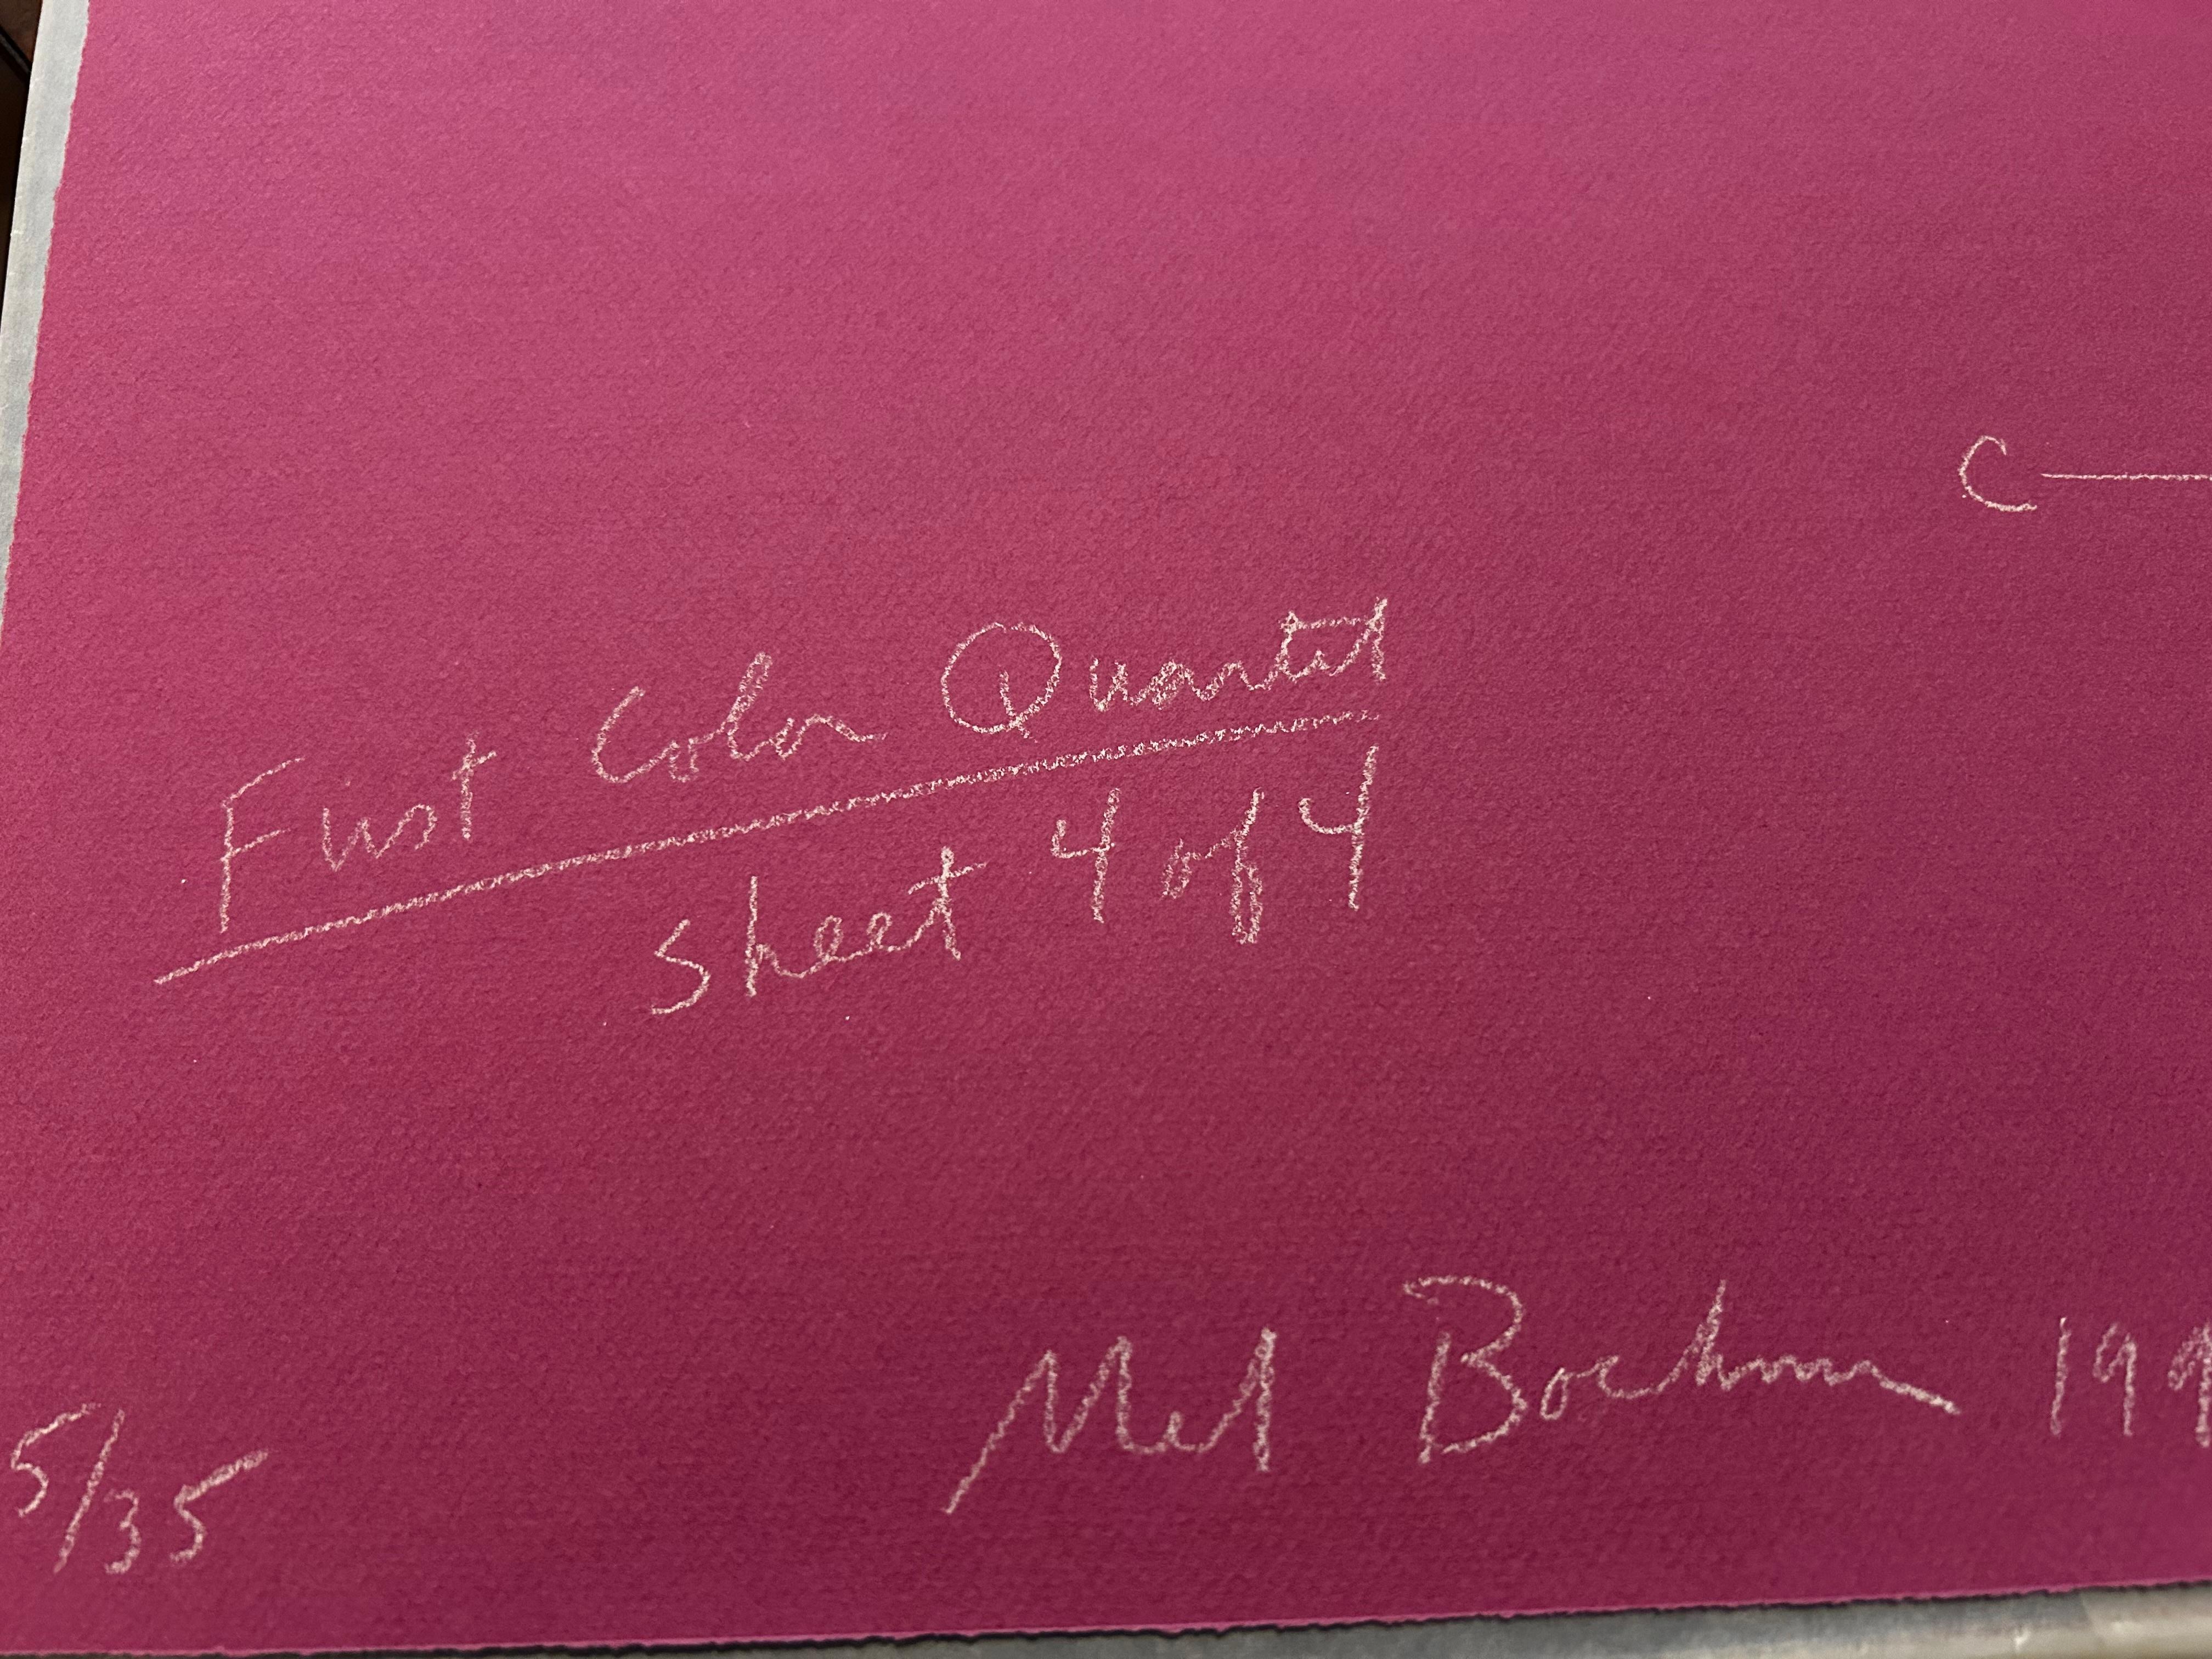 C —
First Color Quartet
sheet 4 of 4
5/35
Mel Bochner 199